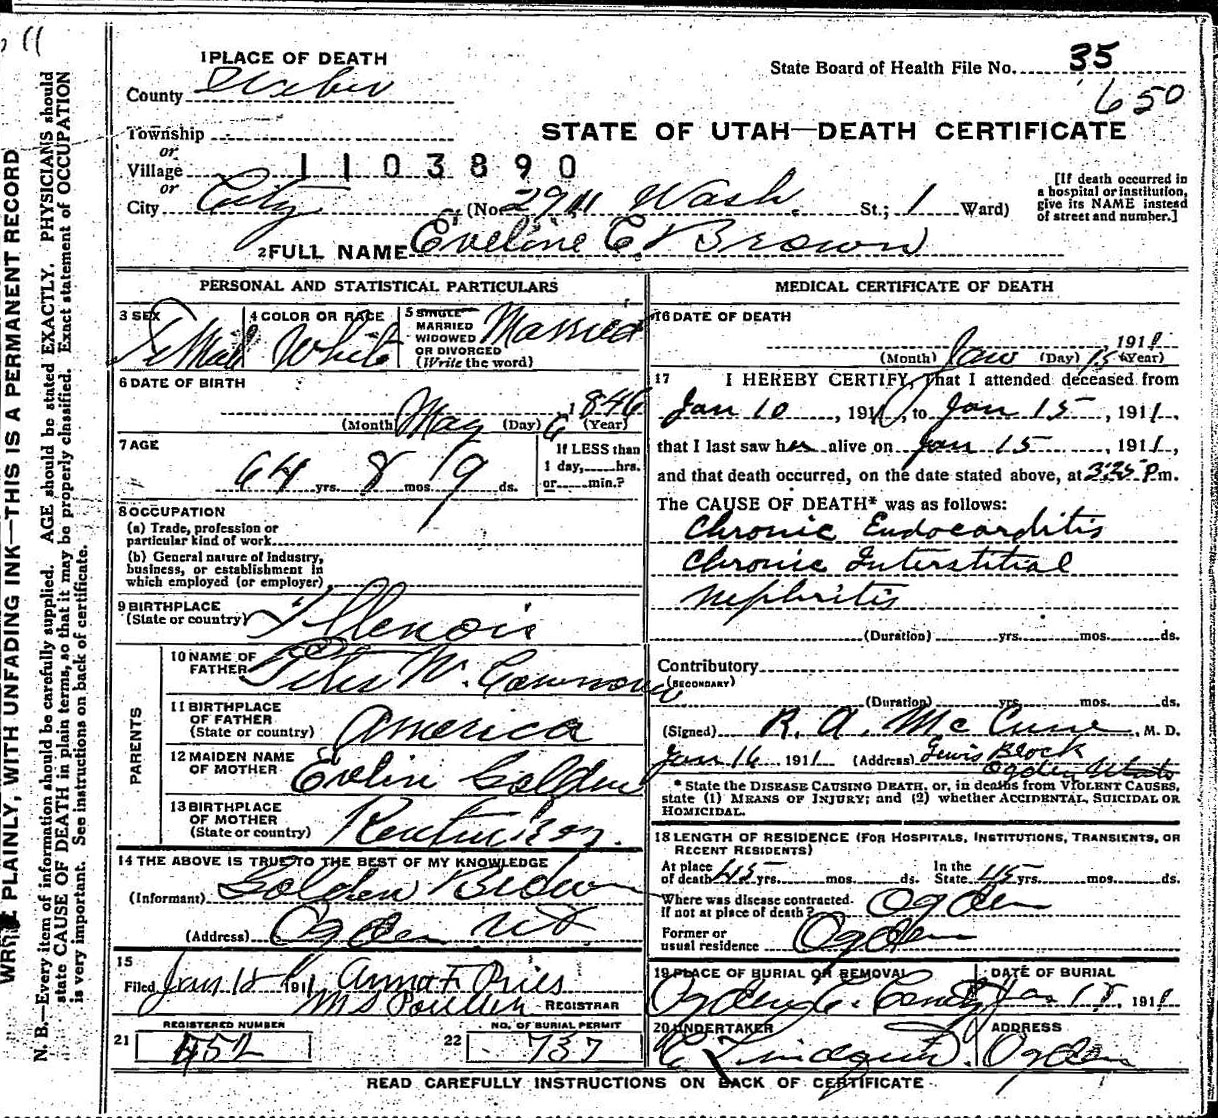 11
1 PLACE OF DEATH
County Weber
State Board of Health File No. 35
650
Township
or
STATE OF UTAH—DEATH CERTIFICATE
Village 1103890
or
City City (No. 2911 Wash. St.; 1 Ward)
[If death occurred in
a hospital or institution,
give its NAME instead
of street and number.]
2 FULL NAME Eveline E. Brown
PERSONAL AND STATISTICAL PARTICULARS
3 SEX Female
4 COLOR OR RACE White
5 SINGLE
MARRIED
WIDOWED
OR DIVORCED
(Write the word) Married
6 DATE OF BIRTH
(Month) May (Day) 6 1846 (Year)
7 AGE
64 yrs. 8 mos. 9 ds.
If LESS than
1 day,____hrs.
or____min.?
8 OCCUPATION
(a) Trade, profession or
particular kind of work
(b) General nature of industry,
business, or establishment in
which employed (or employer)
9 BIRTHPLACE
(State or country) Illenois
PARENTS
10 NAME OF
FATHER Peter W.
11 BIRTHPLACE
OF FATHER
(State or country) America
12 MAIDEN NAME
OF MOTHER Evelin Golden
13 BIRTHPLACE
OF MOTHER
(State or country)
14 THE ABOVE IS TRUE TO THE BEST OF MY KNOWLEDGE
(Informant) Golden Brown
(Address) Ogden Ut
15
Filed Jan 18 1911 Anna F. Pries
REGISTRAR
REGISTERED NUMBER
21 452
NO. OF BURIAL PERMIT
22 737
MEDICAL CERTIFICATE OF DEATH
16 DATE OF DEATH
(Month) Jan (Day) 15 1911 (Year)
17 I HEREBY CERTIFY, That I attended deceased from
Jan 10, 1911, to Jan 15, 1911,
that I last saw her alive on Jan 15, 1911,
and that death occurred, on the date stated above, at 3:25 P m.
The CAUSE OF DEATH* was as follows:
Chronic Endocarditis
Chronic Interstitial
Nephritis
(Duration) yrs. mos. ds.
Contributory
(SECONDARY)
(Duration) yrs. mos. ds.
(Signed) R. A. McCune M. D.
Jan 16 1911 (Address) Lewis Block
Ogden Utah
* State the DISEASE CAUSING DEATH, or, in deaths from VIOLENT CAUSES,
state (1) MEANS OF INJURY; and (2) whether ACCIDENTAL, SUICIDAL OR
HOMICIDAL.
18 LENGTH OF RESIDENCE (FOR HOSPITALS, INSTITUTIONS, TRANSIENTS, OR
RECENT RESIDENTS)
At place
of death 45 yrs. mos. ds. In the
State 45 yrs. mos. ds.
Where was disease contracted
if not at place of death? Ogden
Former or
usual residence Ogden
19 PLACE OF BURIAL OR REMOVAL
Ogden C.
DATE OF BURIAL
Jan 18, 1911
20 UNDERTAKER
Lindquist
ADDRESS
Ogden
READ CAREFULLY INSTRUCTIONS ON BACK OF CERTIFICATE
WRITE PLAINLY, WITH UNFADING INK—THIS IS A PERMANENT RECORD
N. B.—Every item of information should be carefully supplied. AGE should be stated EXACTLY. PHYSICIANS should
state CAUSE OF DEATH in plain terms, so that it may be properly classified. Exact statement of OCCUPATION
is very important. See instructions on back of certificate.